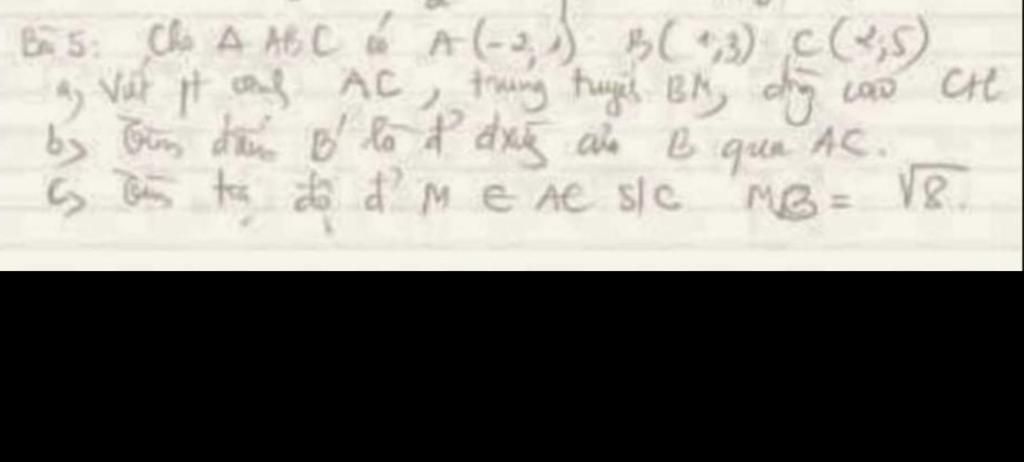 Bài 5: Cho Δ ABC có A(-2,1) B(1,3) C(2,5)
a, Viết pt cạnh AC, trung tuyến BN, đg cao CH
b> Tìm điểm B' là đ² đxứg của B qua AC.
c> Tìm tọa độ đ² M ∈ AC s/c MB = √8.